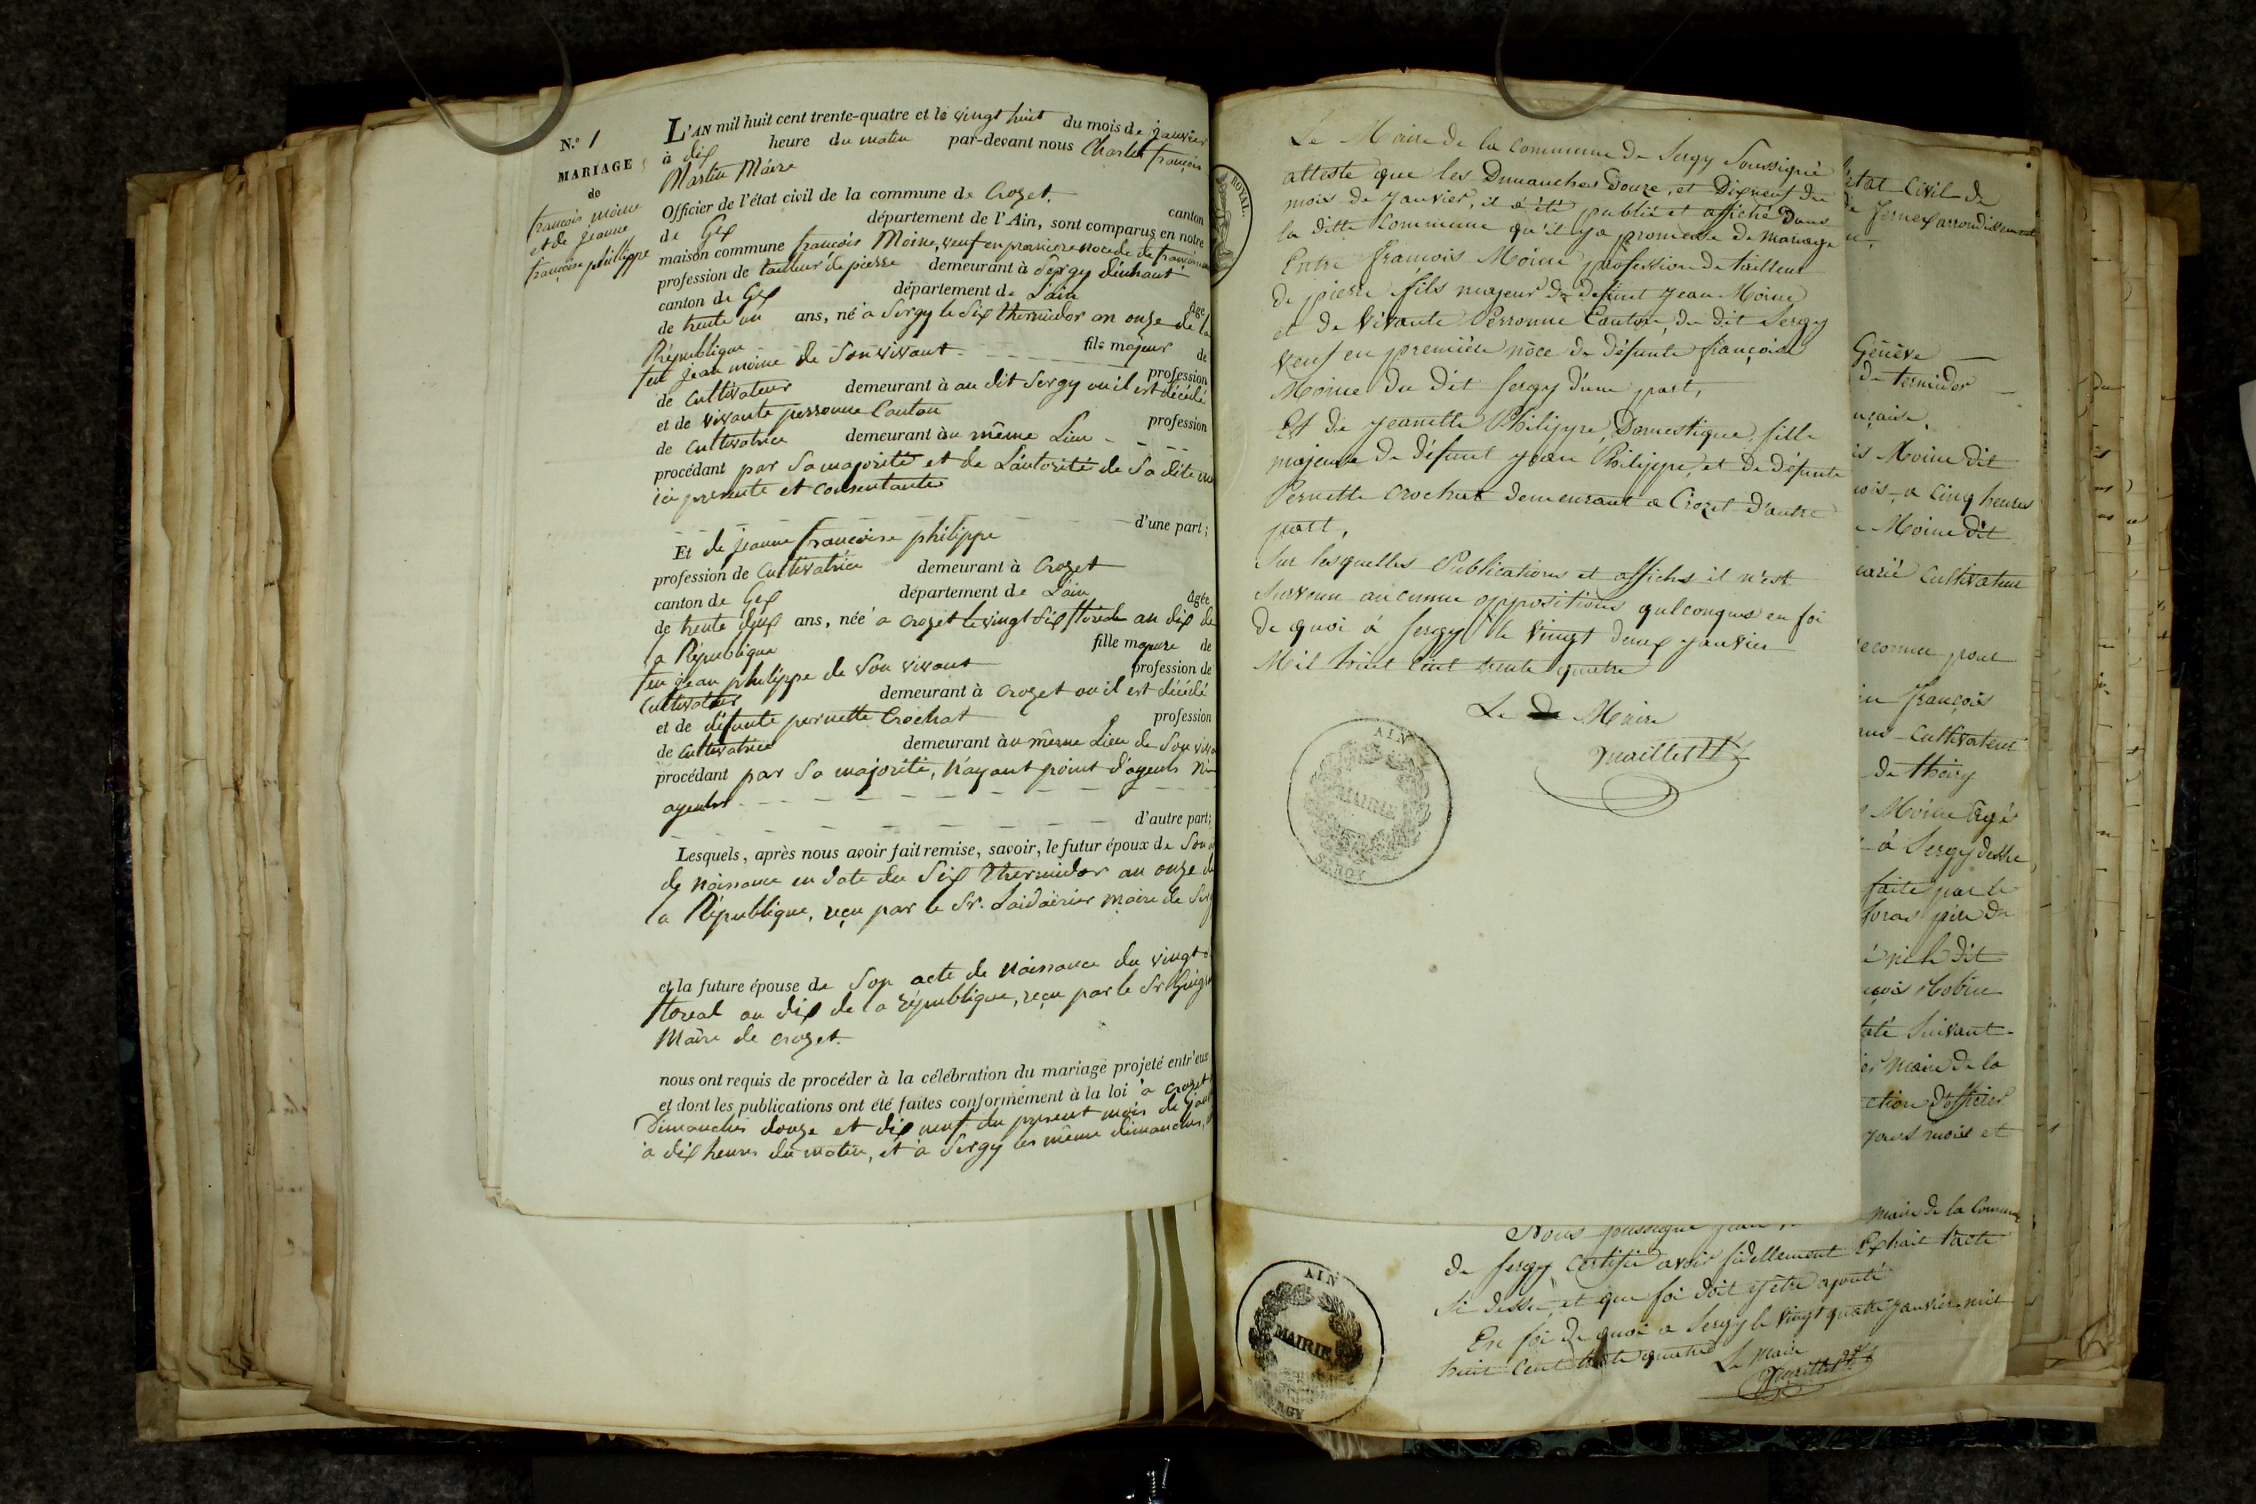 N.º 1
MARIAGE
de
françois moine
et de jeanne
françoise philippe
L'AN mil huit cent trente-quatre et le vingt huit du mois de janvier
à dix heure du matin par-devant nous Charles françois
Martin Maire
Officier de l'état civil de la commune de Crozet. canton
de Gex département de l'Ain, sont comparus en notre
maison commune françois Moine, veuf en premiere noce de
profession de tailleur de pierre demeurant à Sergy d'enhaut
canton de Gex département de L'ain Agé
de trente un ans, né a Sergy le Six thermidor an onze de la
République fils majeur de
feu jean moine de Son vivant profession
de Cultivateur demeurant à au dit Sergy ou il est décédé
et de vivante perronne Canton profession
de Cultivatrice demeurant au même Lieu
procédant par Sa majorité et de L'autorité de Sa dite
ici presente et consentante
d'une part;
Et de jeanne françoise philippe
profession de Cultivatrice demeurant à Crozet
canton de Gex département de L'ain Agée
de trente deux ans, née a Crozet le vingt Six floréal an dix de
la République fille majeure de
feu jean philippe de Son vivant profession de
Cultivateur demeurant à Crozet ou il est décédé
et de défunte pernette Crochat profession
de Cultivatrice demeurant au même Lieu de Son
procédant par Sa majorité, n'ayant point d'ayeuls ni
ayeules
d'autre part;
Lesquels, après nous avoir fait remise, savoir, le futur époux de Son
de Naissance en date du Six thermidor an onze de
la République, reçu par le Sr. Maire de
et la future épouse de Son acte de Naissance du vingt
floreal an dix de la république, reçu par le Sr
Maire de crozet.
nous ont requis de procéder à la célébration du mariage projeté entr'eux
et dont les publications ont été faites conformément à la loi à Crozet
Dimanches douze et dix neuf du present mois de
à dix heures du matin, et à Sergy les même dimanches,
ROYAL.
Le Maire de la Commune de Sergy Soussigné
atteste que les Dimanches Douze, et Dixneuf du
mois de Janvier, il a été publié et affiché Dans
la ditte Commune qu'il y a promesse de Mariage
Entre françois Moine profession de tailleur
de pierre fils majeur de defunt Jean Moine
et de Vivante Perronne Canton, du dit Sergy
veuf en première nôce de défunte françoise
Moine du dit Sergy d'une part,
Et de Jeanette Philippe, Domestique, fille
majeure de défunt Jean Philippe, et de défunte
Pernette Crochat demeurant a Crozet d'autre
part,
Sur lesquelles Publications et affiches il n'est
survenu aucunne oppositions quelconques en foi
de quoi à Sergy le vingt deux Janvier
Mil huit Cent trente quatre
Le Maire
AIN
MAIRIE
SERGY
état Civil de
de fernex arrondissement
Génève
de termidor
Moine dit
a cinq heures
Moine dit
Cultivateur
reconnu pour
françois
Cultivateur
de thoiry
Moine Agé
à Sergy dessus
faite par le
père de
dit
suivant
Maire de la
d'officier
jours mois et
Nous maire de la Commune
de Sergy Certifie avoir fidellement Extrait l'acte
Si dessu, et que foi doit y etre ajouté
En foi de quoi a Sergy le vingt quatre Janvier mil
huit Cent trente quatre Le Maire
AIN
MAIRIE
SERGY